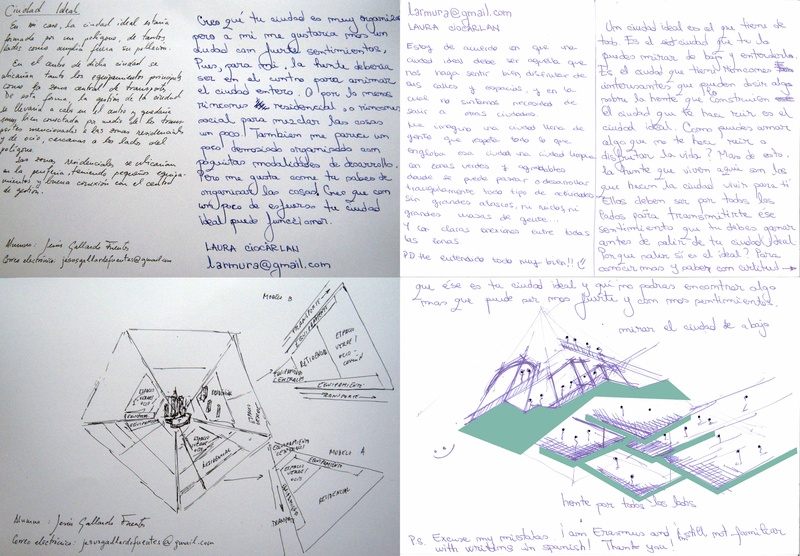 Ciudad Ideal
En mi caso, la ciudad ideal estaría
formada por un polígono, de tantos
lados como amplia fuera su población.
En el centro de dicha ciudad se
ubicarían tanto los equipamientos principales
como la zona central de transporte.
De esta forma, la gestión de la ciudad
se llevaría a cabo en el centro y quedaría
muy bien conectada por medio de los trans-
portes mencionados a las zonas residenciales
y de ocio, cercanas a los lados del
polígono.
Las zonas residenciales se ubicarían
en la periferia, teniendo pequeños equipa-
mientos y buena conexión con el centro
de gestión.
Alumno: Jesús Gallardo Fuentes
Correo electrónico: jesusgallardofuentes@gmail.com
Creo qué tu ciudad es muy organizada
pero a mi me gustaria mas un
ciudad con fuerte sentimientos,
Pues, para mi, la fuente deberia
ser en el centro para animar
el ciudad entero. O por lo menos
rincones residencial, o rincones
social para mezclar las cosas
un poco! Tambien me parece un
poco demosiado organisado con
poquitas modalidades de desarrollo.
Pero me gusta como tu sabes de
organizar las cosas! Creo que con
un poco de esfuerzo tu ciudad
ideal puede funccionar.
LAURA CIOCARLAN
larmura@gmail.com
larmura@gmail.com
LAURA CIOCARLAN
Estoy de acuerdo en que una
ciudad ideal debe ser aquella que
nos haga sentir bien, disfrutar de
sus calles y espacios, y en la
cual no sintamos necesidad de
salir a otras ciudades.
Me imagino una ciudad llena de
gente que respeta todo lo que
engloba esa ciudad, una ciudad limpia
con zonas verdes y agradables
donde se pueda pasear o desarrollar
tranquilamente todo tipo de actividades
sin grandes atascos, ni ruidos, ni
grandes masas de gente...
Y con claras conexiones entre todas
las zonas.
PD: He entendido todo muy bien!!
Un ciudad ideal es el que tiene de
todo. Es el ciudad que tu la
puedes mirar de bajo y entenderla.
Es el ciudad que tiene rincones
interesantes que pueden disir algo
sobre la hente que construien
El ciudad que te hace reir es el
ciudad ideal. Como puedes amar
algo que no te hace reir o
disfrutar la vida? Mas de esto,
la hente que viven aqui son los
que hacen la ciudad vivir para ti
Ellos deben ser por todos los
lados para transmitirte ese
sentimiento que tu debes ganar
antes de salir de tu ciudad ideal
Por que salir si es el ideal? Para
conocer mas y saber con certitud
que ése es tu ciudad ideal y qui no podras encontrar algo
mas que puede ser mas fuerte y con mas sentimientos.
mirar el ciudad de abajo
hente por todos los lados
P.S. Excuse my mistakes, I am Erasmus and I still not familiar
with writing in spanish! Thank you!
MODELO B
TRANSPORTE
EQUIPAMIENTO
ESPACIO
VERDE/
OCIO
RESIDENCIAL
EQUIPAMIENTO
CENTRAL
EQUIPAMIENTO
TRANSPORTE
ESPACIO
VERDE
OCIO
RESIDENCIAL
ESPACIO
VERDE
RESIDENCIAL
MODELO A
EQUIPAMIENTO
ESPACIO
VERDE/
OCIO
RESIDENCIAL
Alumno: Jesús Gallardo Fuentes
Correo electrónico: jesusgallardofuentes@gmail.com